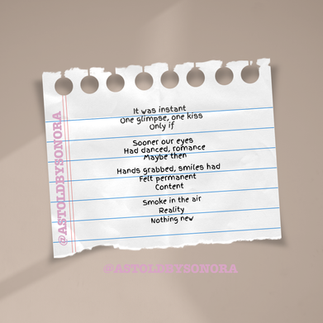 It was instant
One glimpse, one kiss
Only if
Sooner our eyes
Had danced, romance
Maybe then
Hands grabbed, smiles had
Felt permanent
Content
Smoke in the air
Reality
Nothing new
@ASTOLDBYSONORA
@ASTOLDBYSONORA